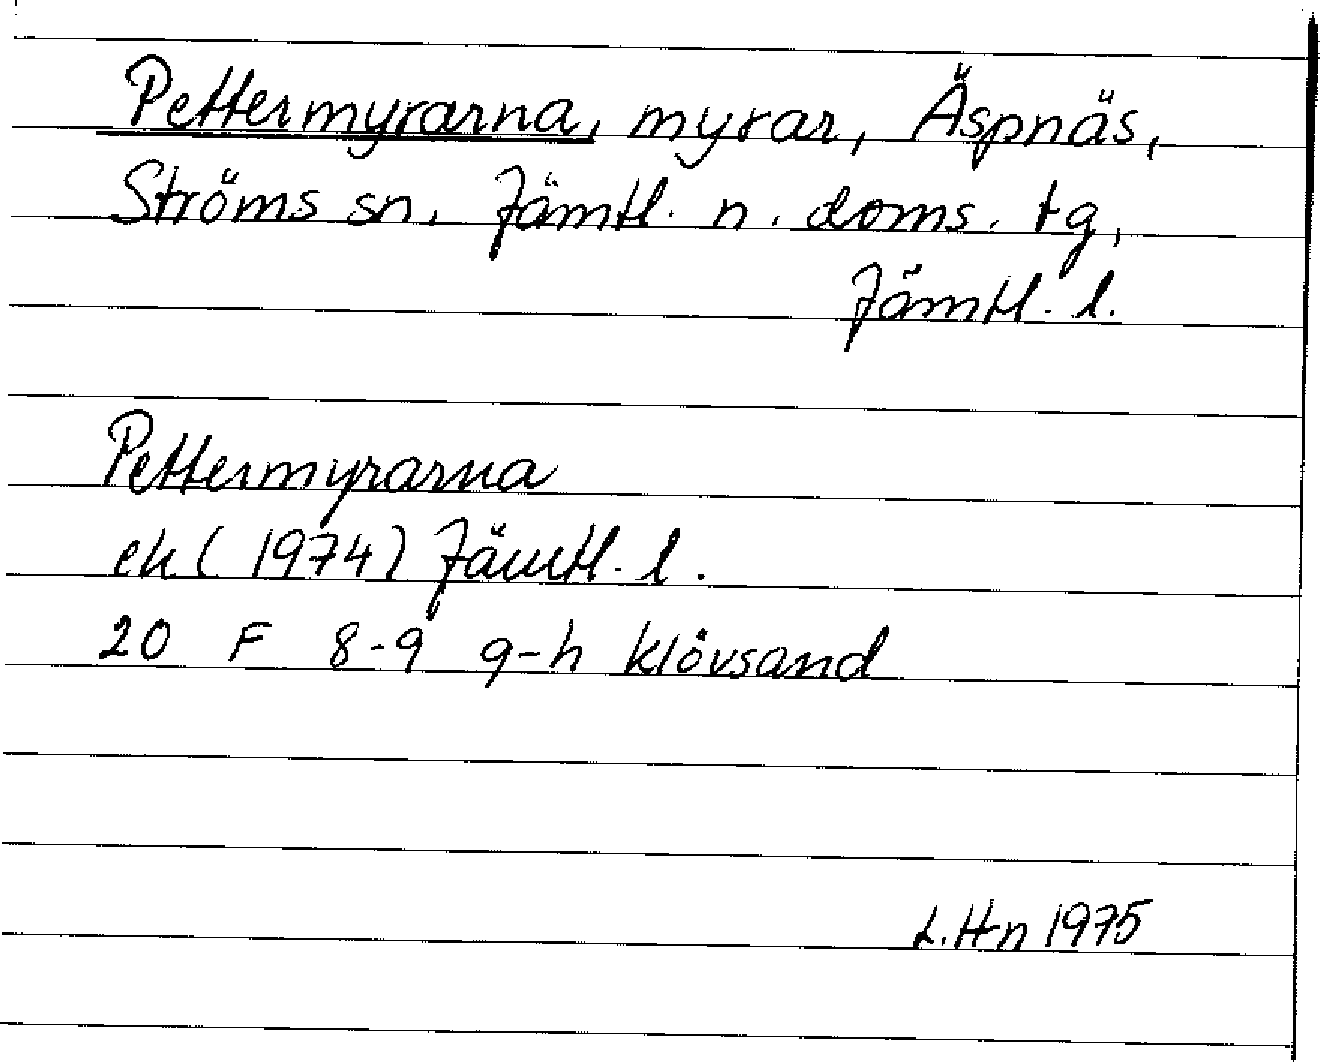 Pettermyrarna, myrar, Äspnäs,
Ströms sn. Jämtl. n. doms. tg,
Jämtl. l.
Pettermyrarna
ek (1974) Jämtl. l.
20 F 8-9 g-h Klövsand
L.Hn 1975